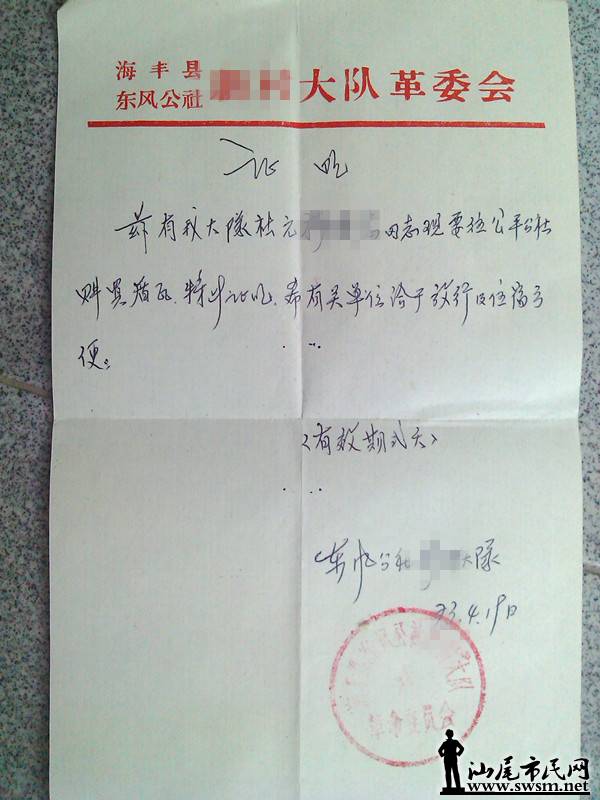 海丰县
东风公社 大队革委会
证明
兹有我大隊社元 同志现要往公平公社
购买猪瓦.特此证明.希有关单位给予放行及住宿方
便。
(有效期弍天)
东风公社 大隊
73.4.19日
汕尾市民网
www.swsm.net